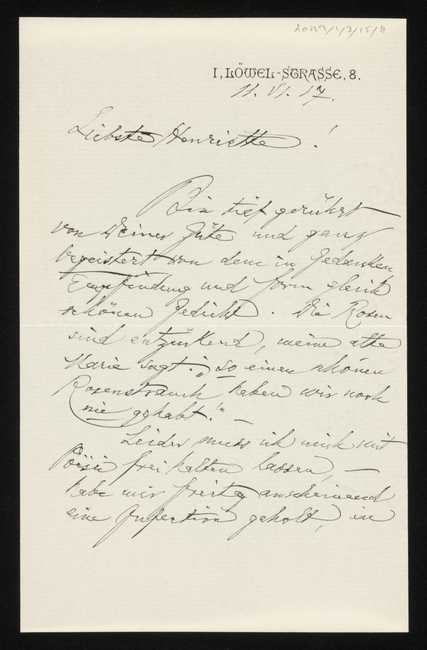 I, LÖWEL-STRASSE, 8.
11. VI. 17.
Liebste Henriette!
Bin tief gerührt
von Deiner Güte und ganz
begeistert von dem in Gedanken,
Empfindung und Form gleich
schönen Gedicht. Die Rosen
sind entzückend, meine alte
Marie sagt: „so einen schönen
Rosenstrauch haben wir noch
nie gehabt." —
Leider muss ich mich mit
Poesie frei halten lassen, —
habe mir Freitag anscheinend
eine Infection geholt, in